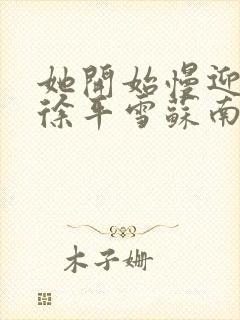 她開始慢迎
徐平雪蘇南
木子姍